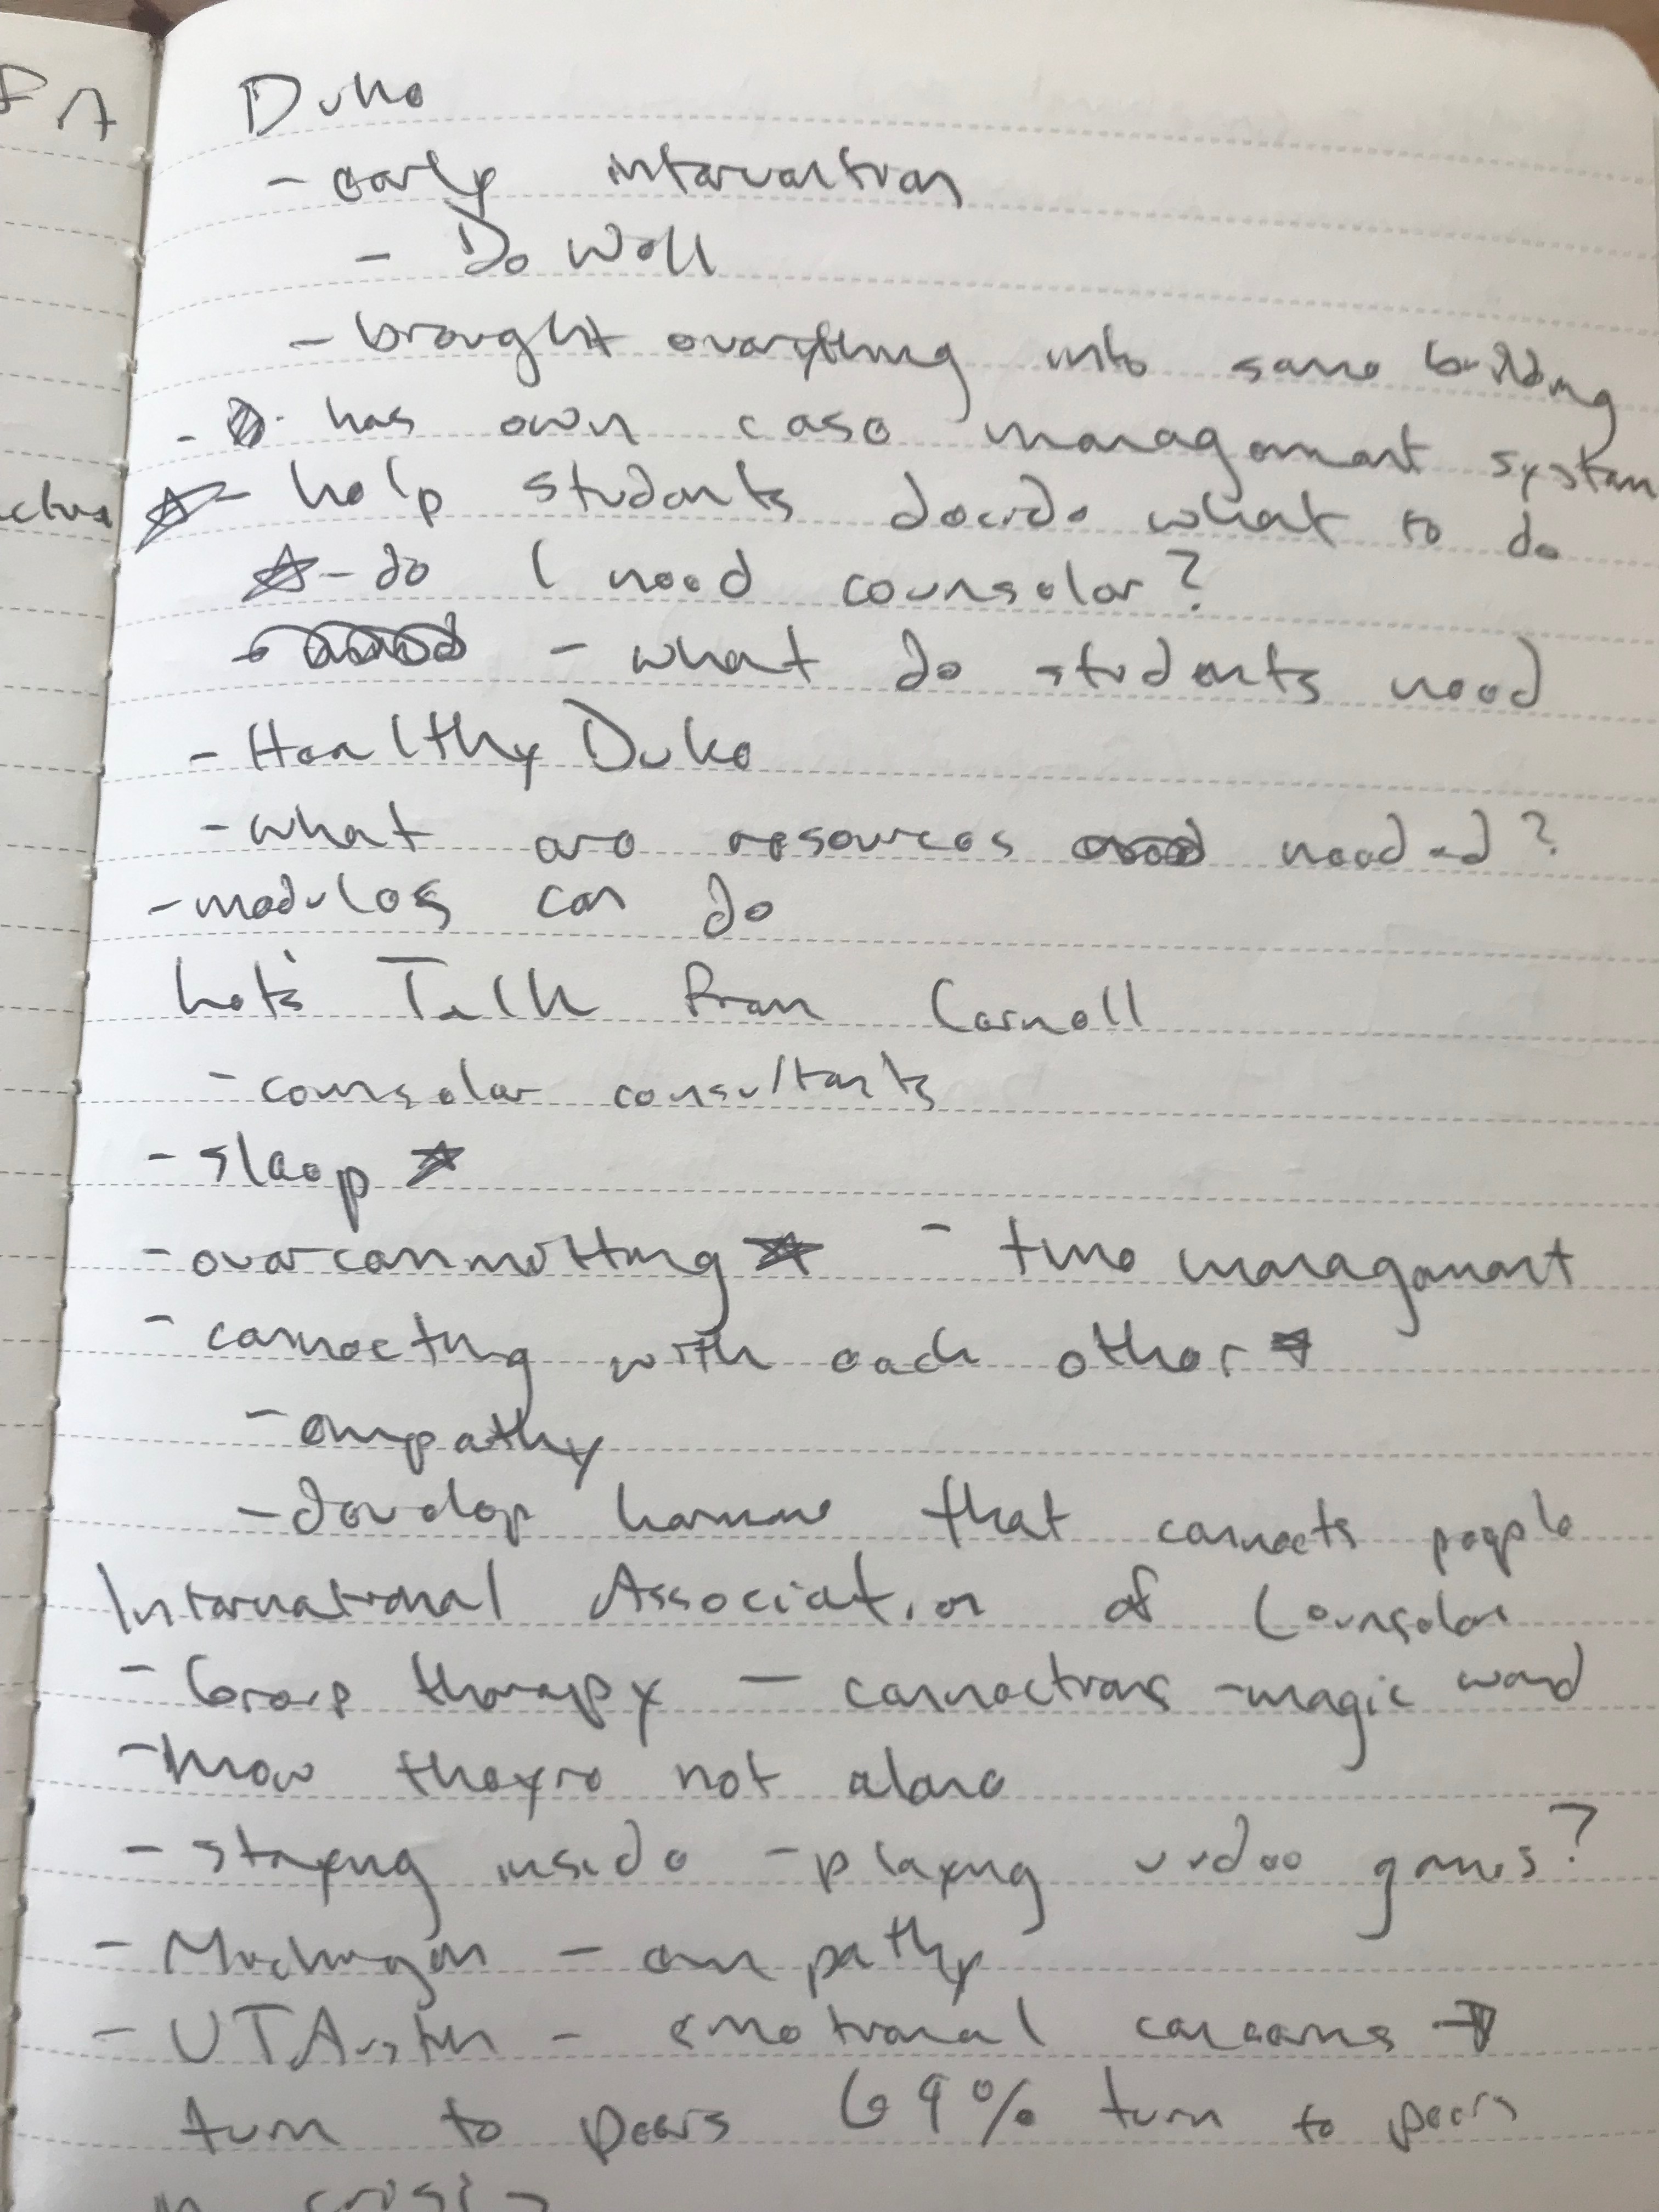 PA
Duke
- early intervention
- DoWell
- brought everything into same building
- has own case management system
- help students decide what to do
- do I need counselor?
- what do students need
- Healthy Duke
- what are resources needed?
- modules can do
ctive
Let's Talk from Cornell
- counselor consultants
- sleep
- overcommitting - time management
- connecting with each other
- empathy
- develop that connects people
International Association of Counselors
- Group therapy - connections - magic word
- know theyre not alone
- staying inside - playing video games?
- Michigan - empathy
- UTAustin - emotional concerns →
turn to peers 69% turn to peers
in crisis